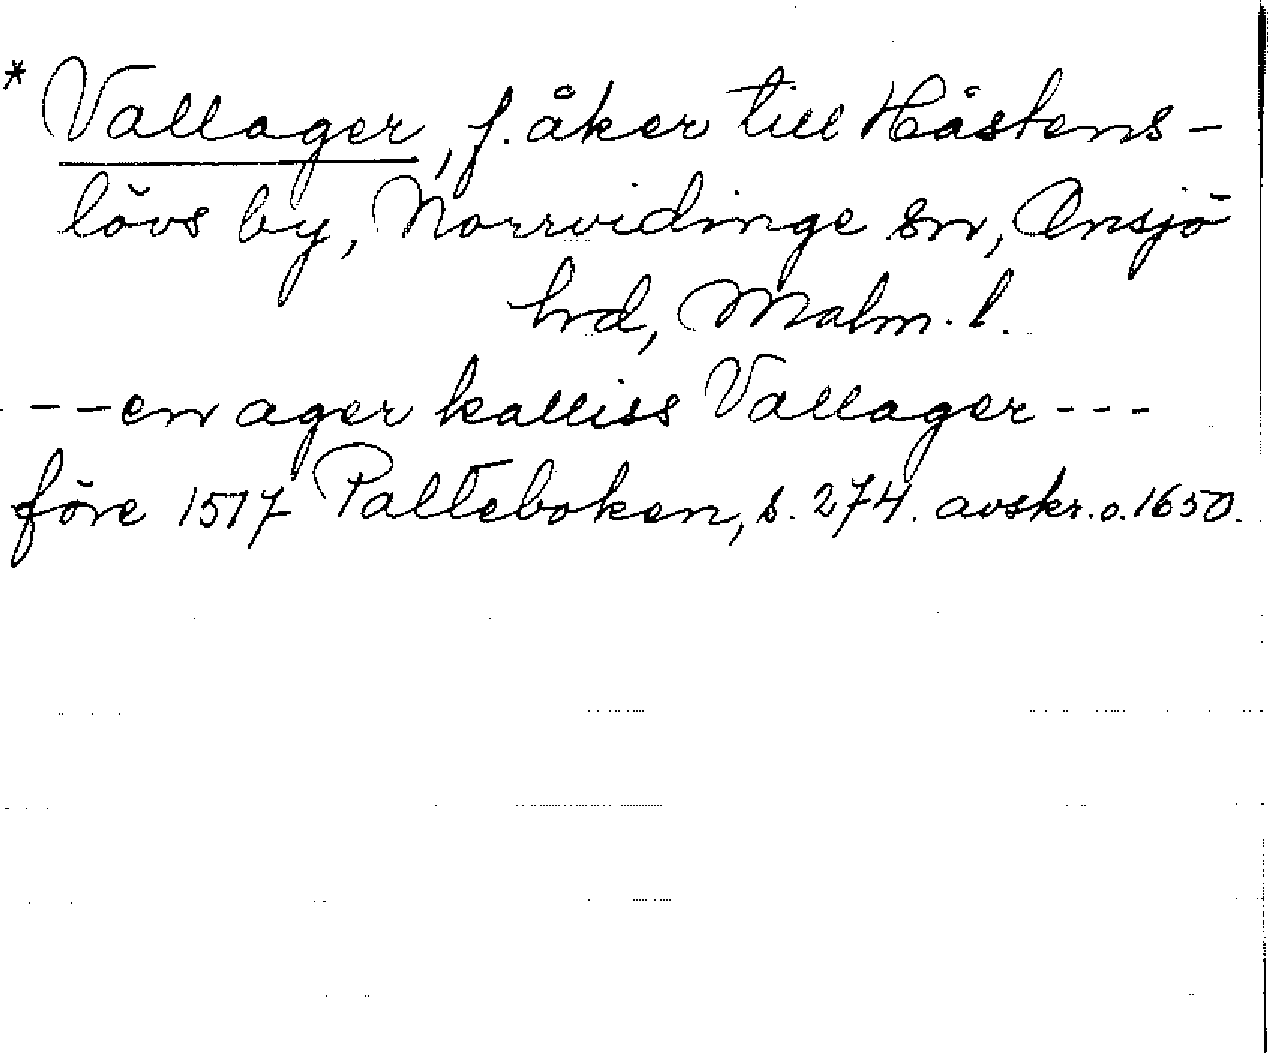 * Vallager, f. åker till Håstens-
lövs by, Norrvidinge sn, Onsjö
hrd, Malm. l.
- - en ager kalliss Vallager - - -
före 1517 Palteboken, s. 274. avskr. o. 1650.